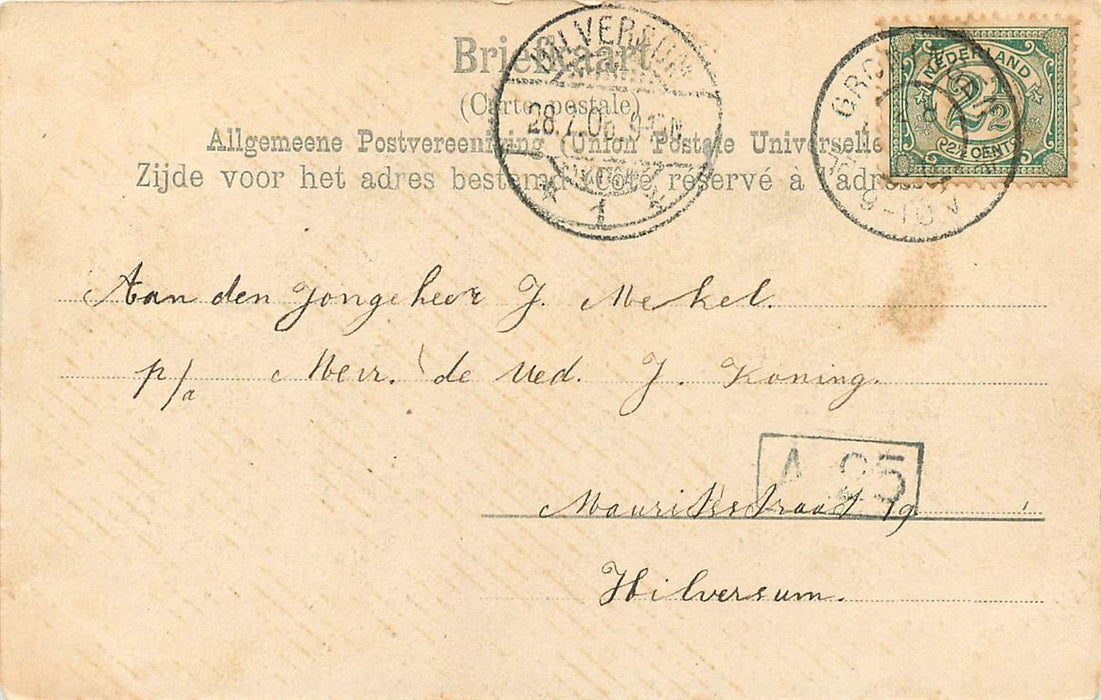 Briefkaart
(Carte postale)
Allgemeene Postvereeniging (Union Postale Universelle
Zijde voor het adres bestemd. Coté réservé à l'adresse
HILVERSUM
28.7.06 9-
1
NEDERLAND
2½
(22½ CENT)
9-10 V
Aan den Jongeheer J. Mekel.
p/a Mevr. de Wed. J. Koning.
A 25
Mauritsstraat 19
Hilversum.